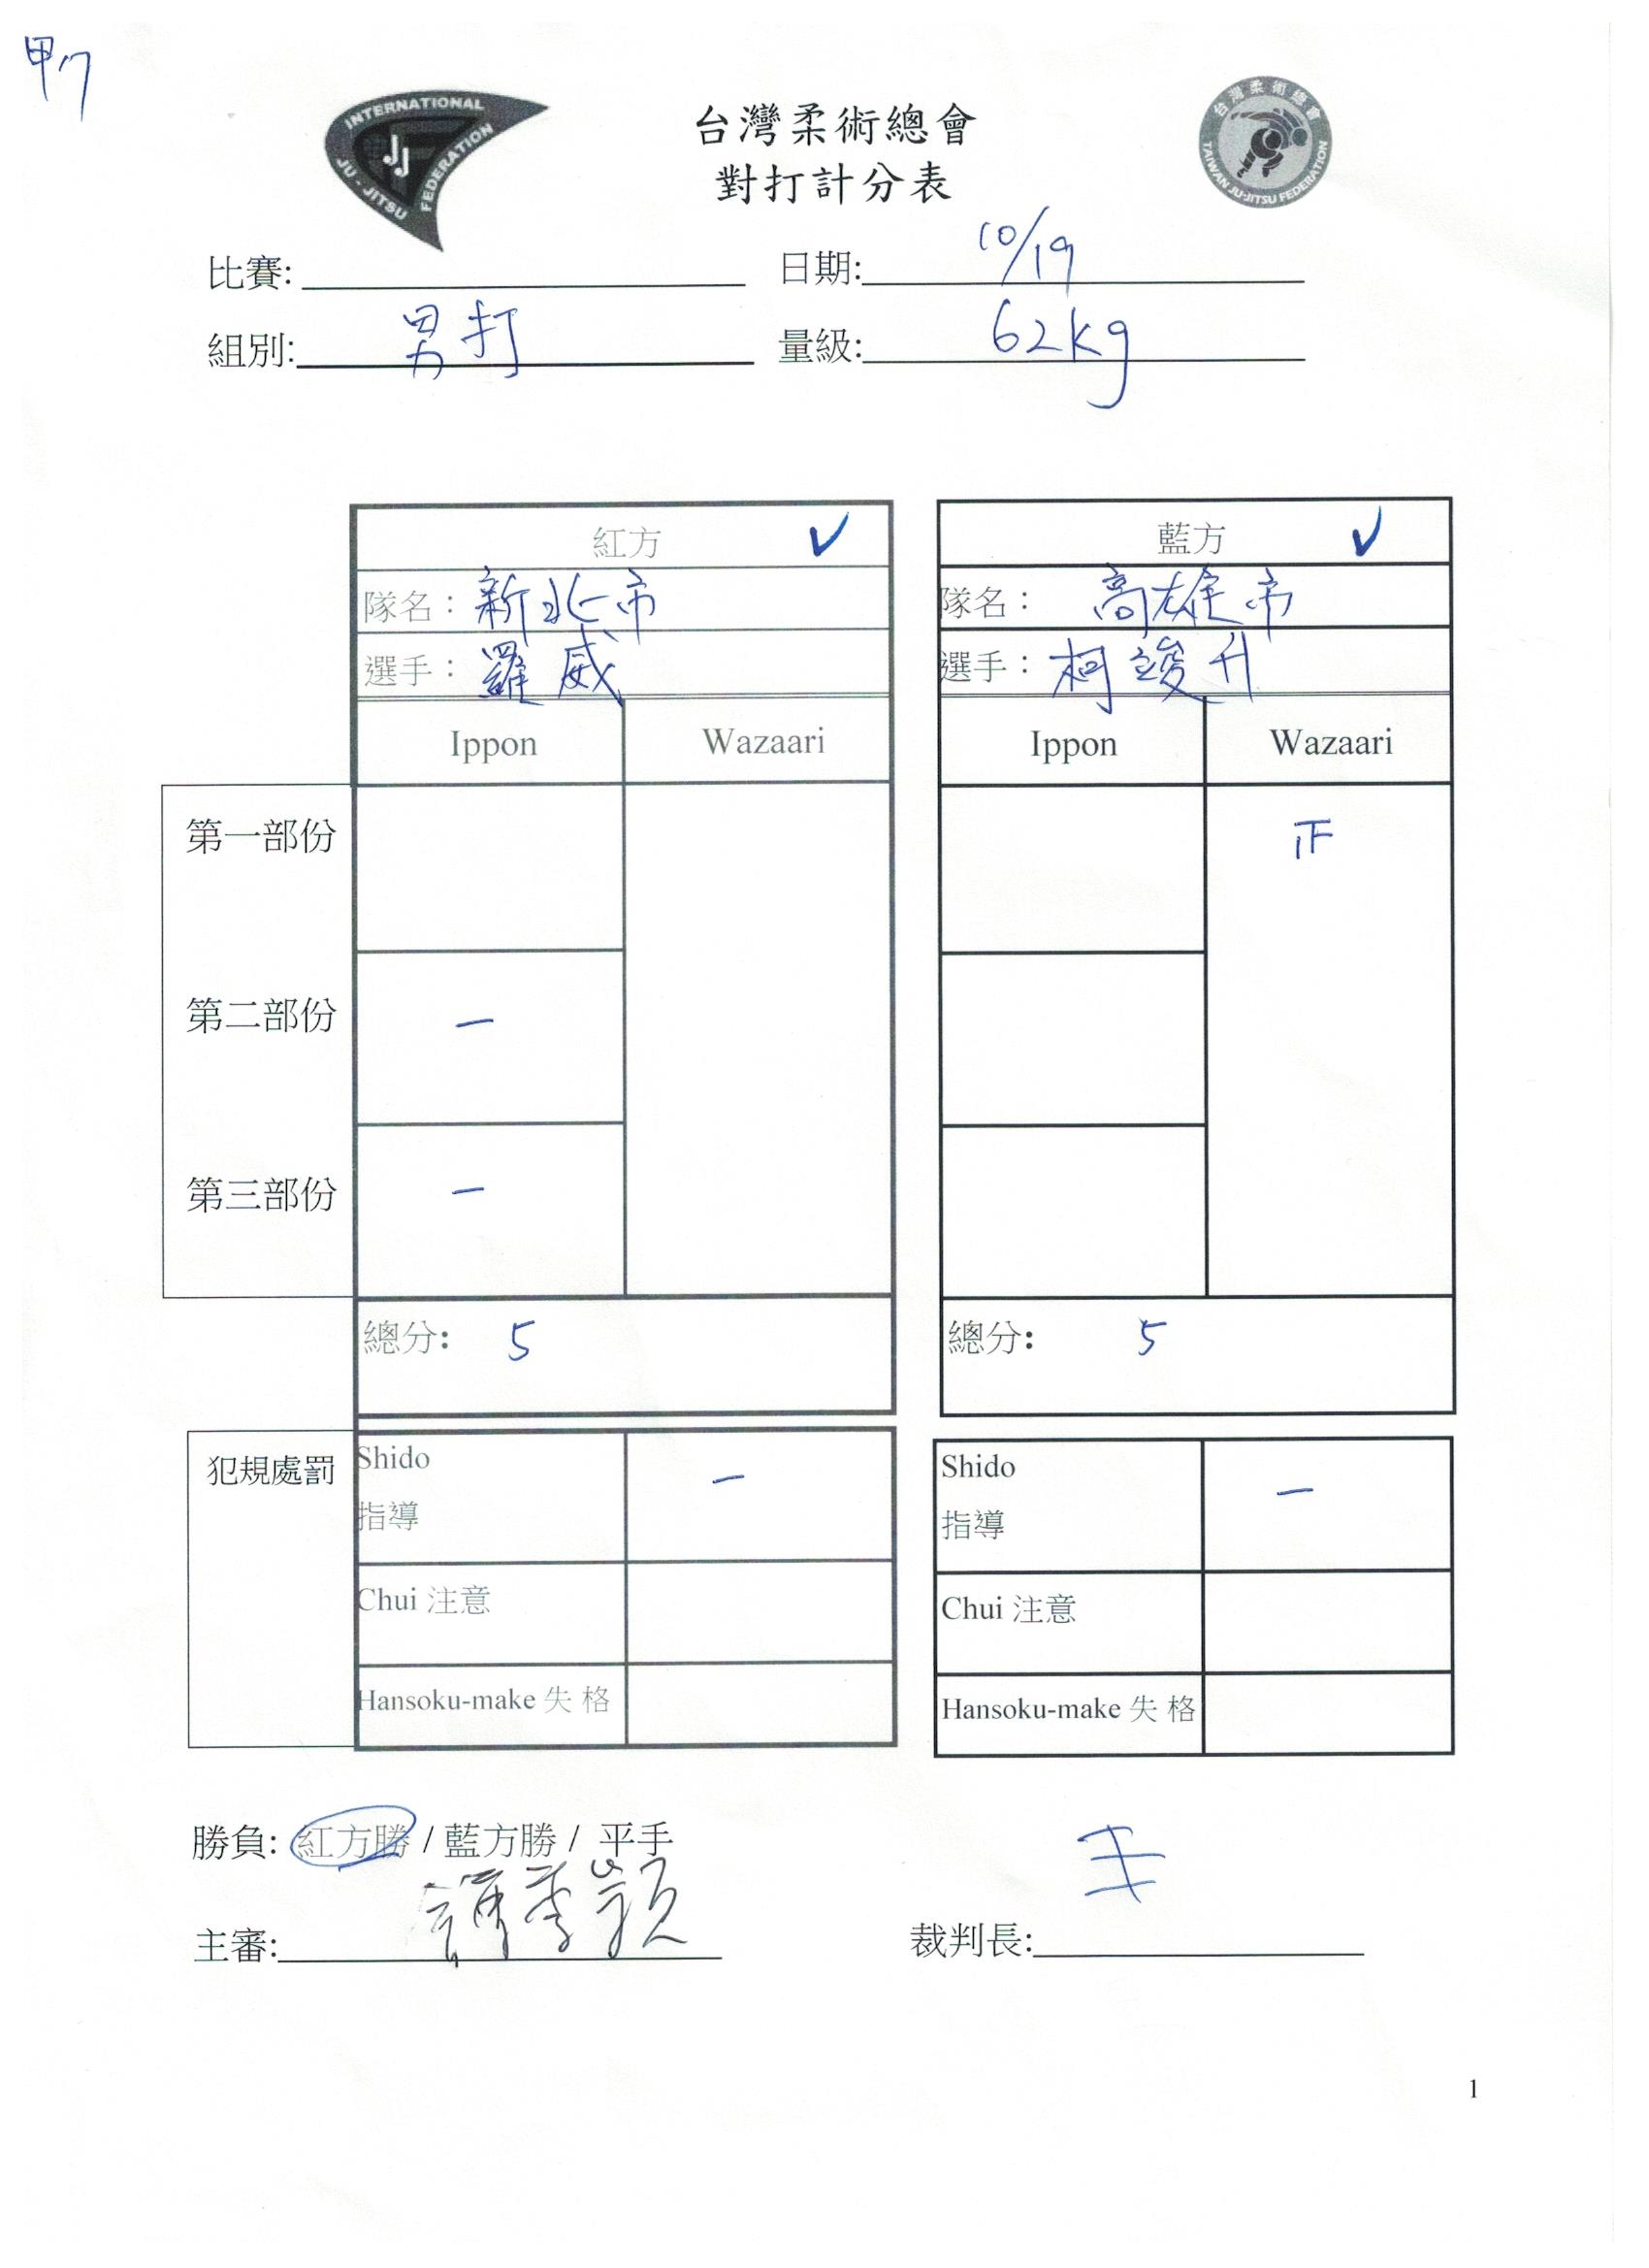 甲17
INTERNATIONAL
JJ
JU-JITSU
FEDERATION
台灣柔術總會
TAIWAN JU-JITSU FEDERATION
台灣柔術總會
對打計分表
比賽: 日期: 10/19
組別: 男打 量級: 62kg
紅方 ✓ 藍方 ✓
隊名: 新北市 隊名: 高雄市
選手: 羅威 選手: 柯竣升
Ippon Wazaari Ippon Wazaari
第一部份 正
第二部份 一
第三部份 一
總分: 5 總分: 5
犯規處罰 Shido 一 Shido 一
指導 指導
Chui 注意 Chui 注意
Hansoku-make 失 格 Hansoku-make 失 格
勝負: 紅方勝 / 藍方勝 / 平手
主審: 裁判長:
1